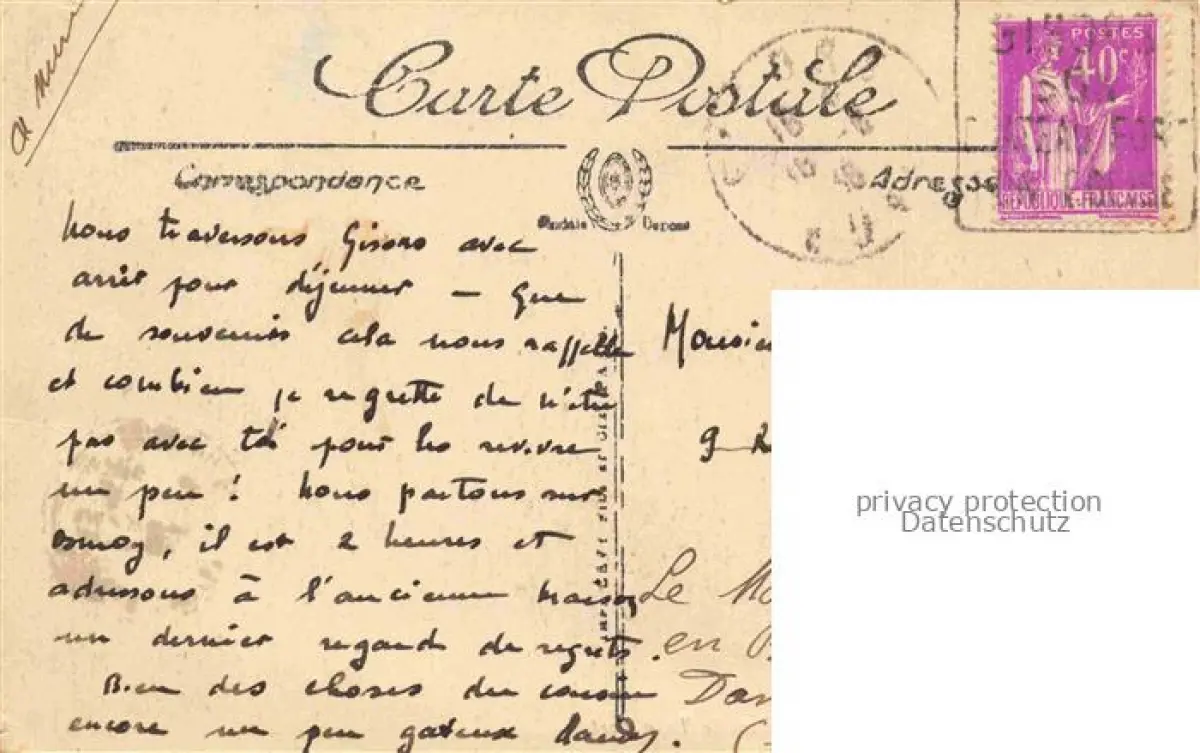 Carte Postale
Correspondance
Adresse
POSTES
40c
RÉPUBLIQUE FRANÇAISE
Nous traversons Gisors avec
arrêt pour déjeuner – Que
de souvenirs cela nous rappelle
et combien je regrette de n'être
pas avec toi pour les revivre
un peu ! Nous partons sur
Osmoy, il est 2 heures et
adressons à l'ancienne maison
un dernier regard de regrets.
Bien des choses du cousin
encore un peu gateux
Monsieu
9 R
Le Mo
en
Dan
privacy protection
Datenschutz